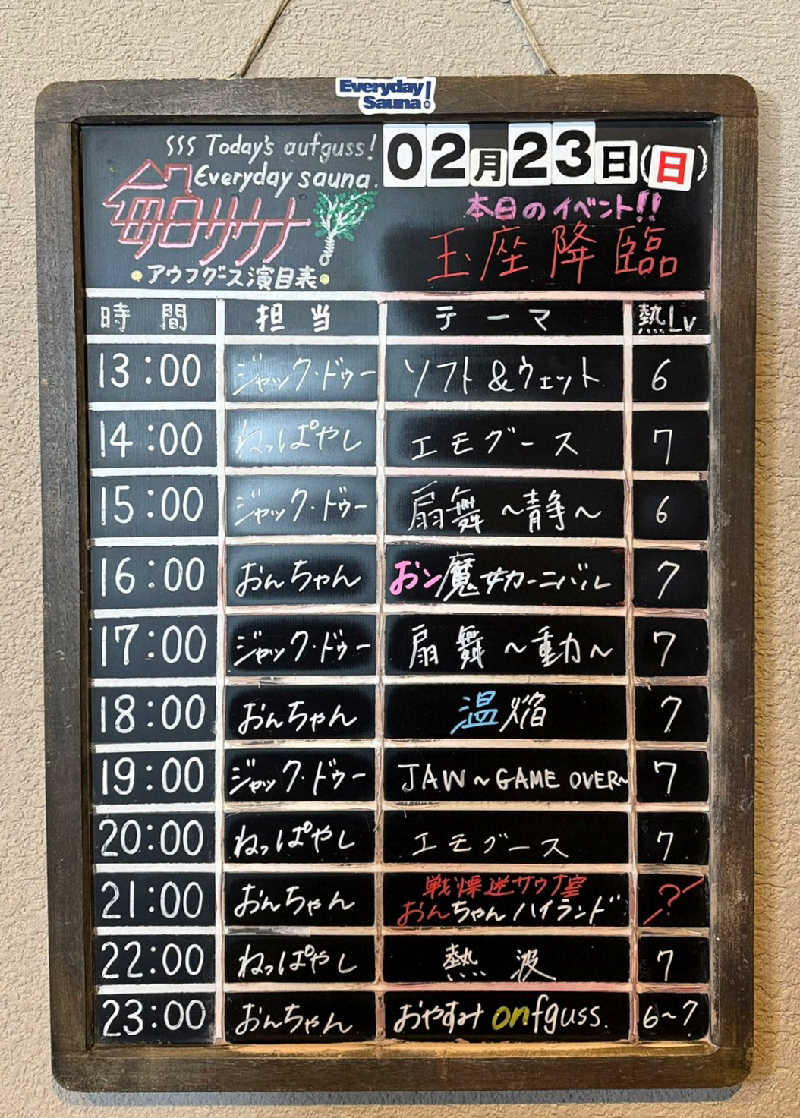 Everyday
Sauna!
Today's aufguss!
Everyday sauna.
毎日サウナ
アウフグース演目表
02月23日(日)
本日のイベント!!
玉座降臨
時間 担当 テーマ 熱Lv
13:00 ジャック・ドゥー ソフト&ウェット 6
14:00 ねっぱやし エモグース 7
15:00 ジャック・ドゥー 扇舞〜静〜 6
16:00 おんちゃん おン魔女カーニバル 7
17:00 ジャック・ドゥー 扇舞〜動〜 7
18:00 おんちゃん 温焔 7
19:00 ジャック・ドゥー JAW〜GAME OVER〜 7
20:00 ねっぱやし エモグース 7
21:00 おんちゃん 戦慄迷サウナ室 おんちゃんハイランド ?
22:00 ねっぱやし 熱波 7
23:00 おんちゃん おやすみ onfguss. 6〜7